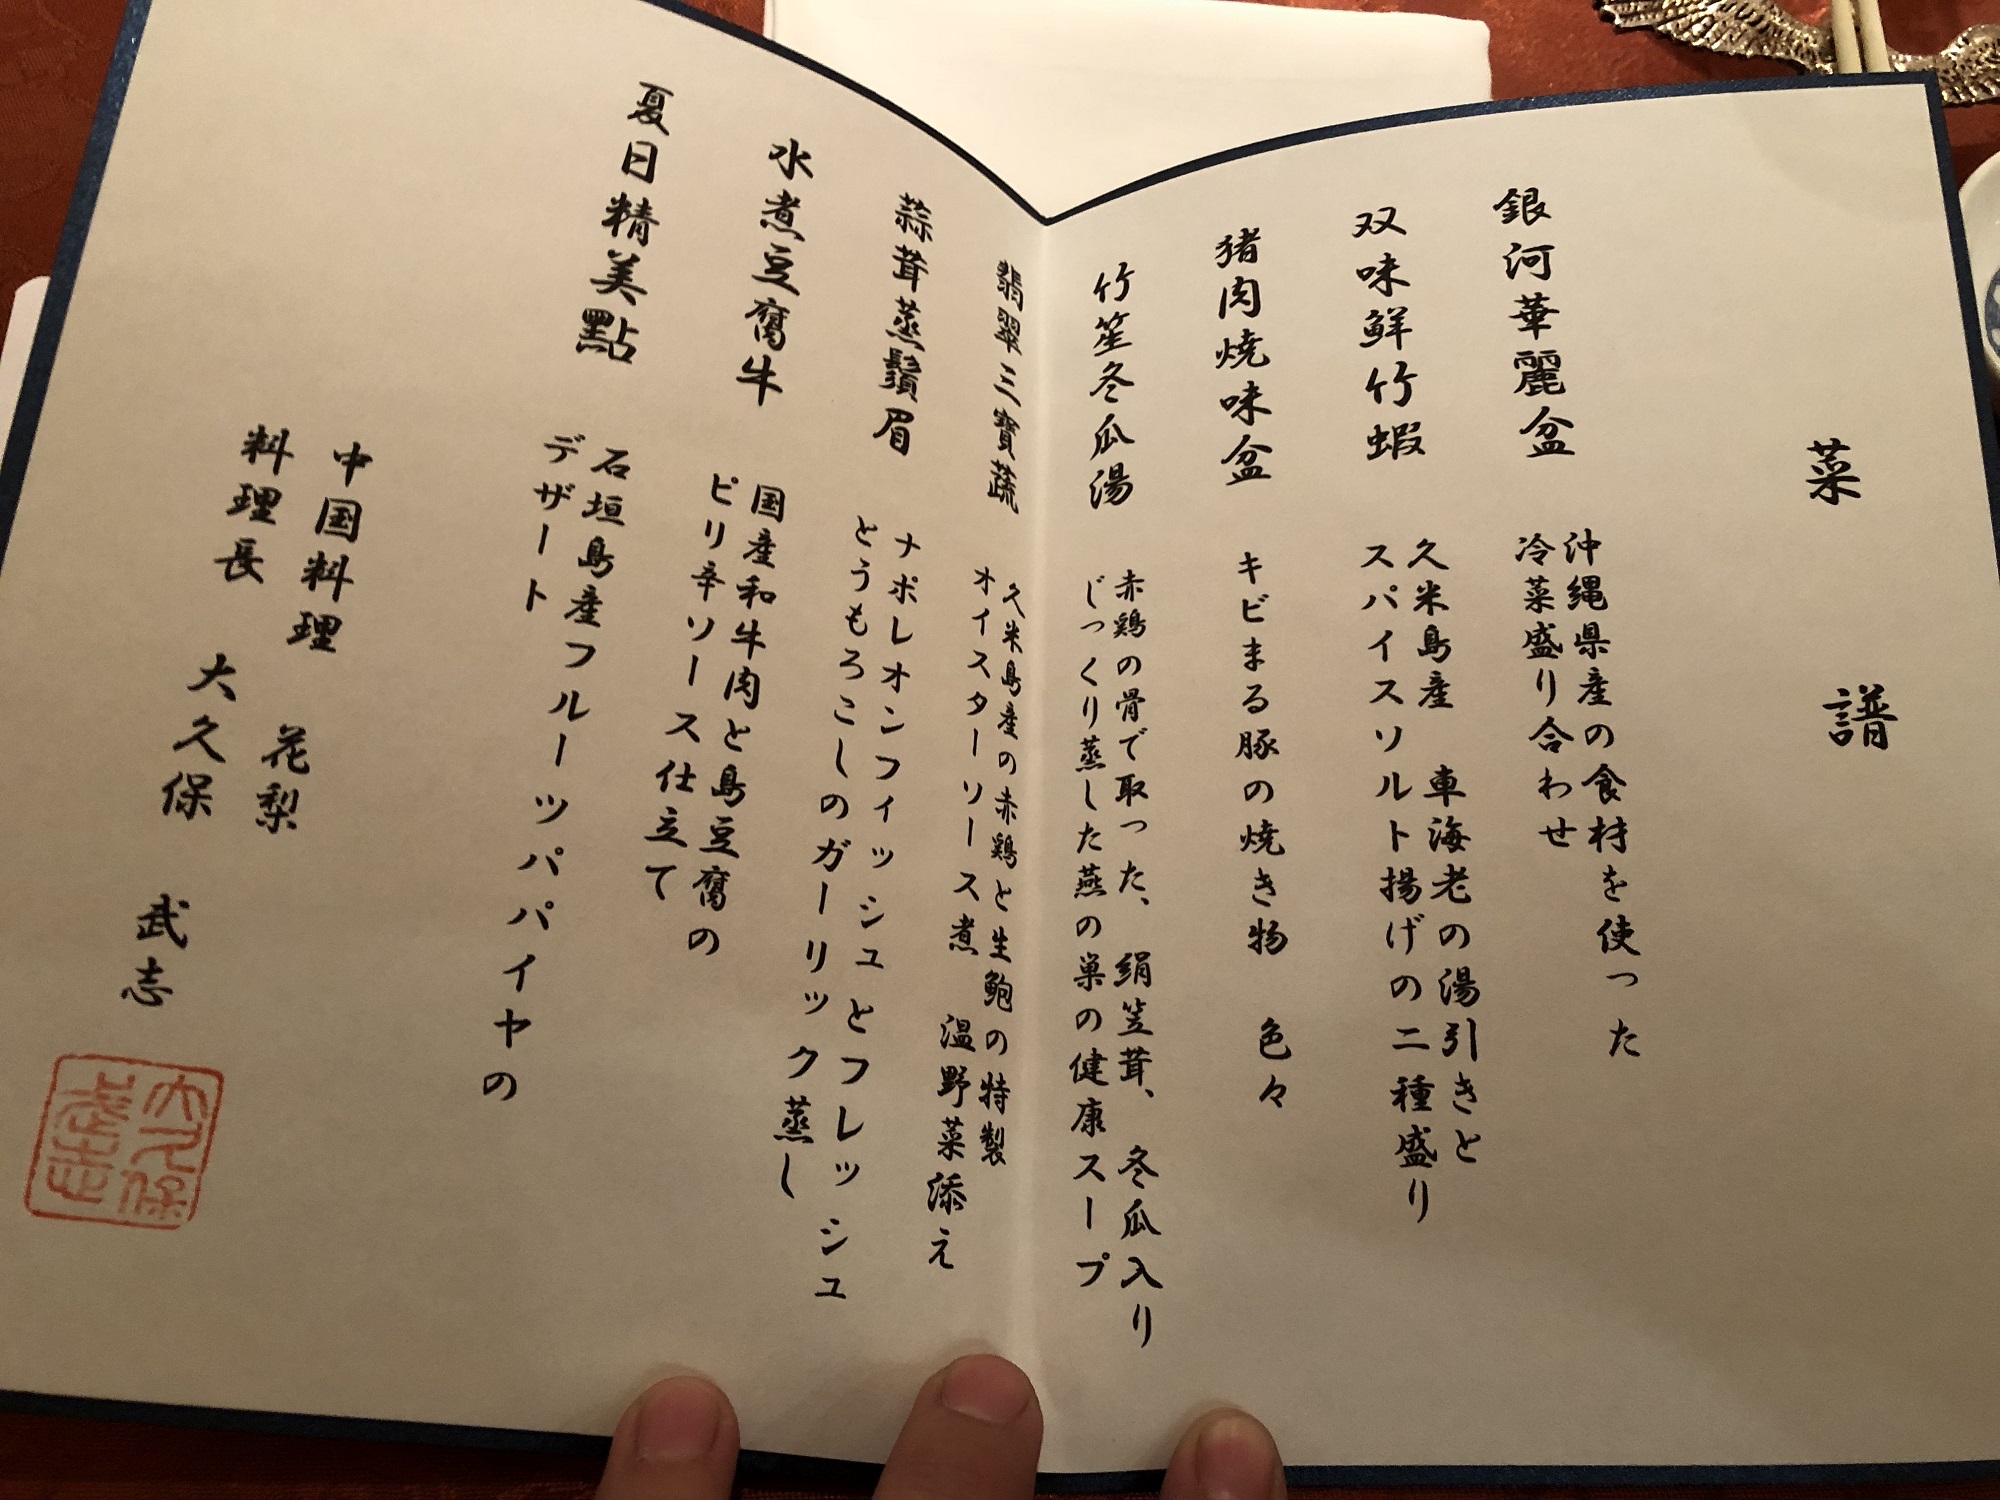 菜譜
銀河華麗盆
沖縄県産の食材を使った
冷菜盛り合わせ
双味鮮竹蝦
久米島産 車海老の湯引きと
スパイスソルト揚げの二種盛り
猪肉焼味盆
キビまる豚の焼き物 色々
竹笙冬瓜湯
赤鶏の骨で取った、絹笠茸、冬瓜入り
じっくり蒸した燕の巣の健康スープ
翡翠三寶蔬
久米島産の赤鶏と生鮑の特製
オイスターソース煮 温野菜添え
蒜茸蒸鬚眉
ナポレオンフィッシュとフレッシュ
とうもろこしのガーリック蒸し
水煮豆腐牛
国産和牛肉と島豆腐の
ピリ辛ソース仕立て
夏日精美點
石垣島産フルーツパパイヤの
デザート
中国料理 花梨
料理長 大久保 武志
大久保
武志